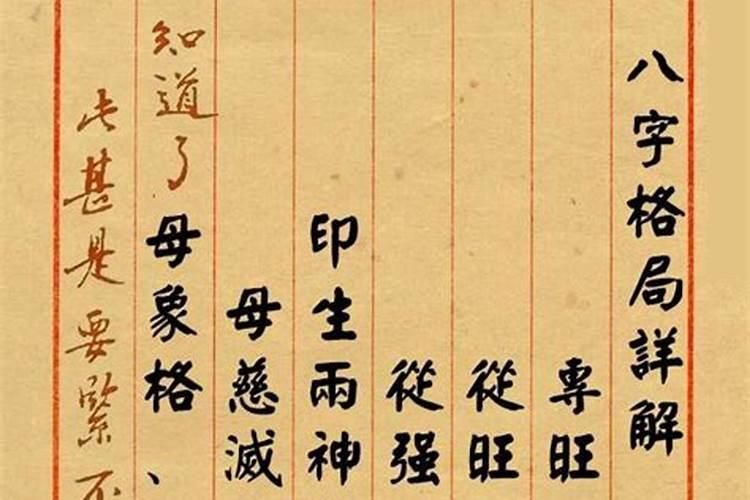 八字格局詳解
專旺
從旺
從强
印生兩神
母慈滅
母象格、
知道了
甚是要緊不